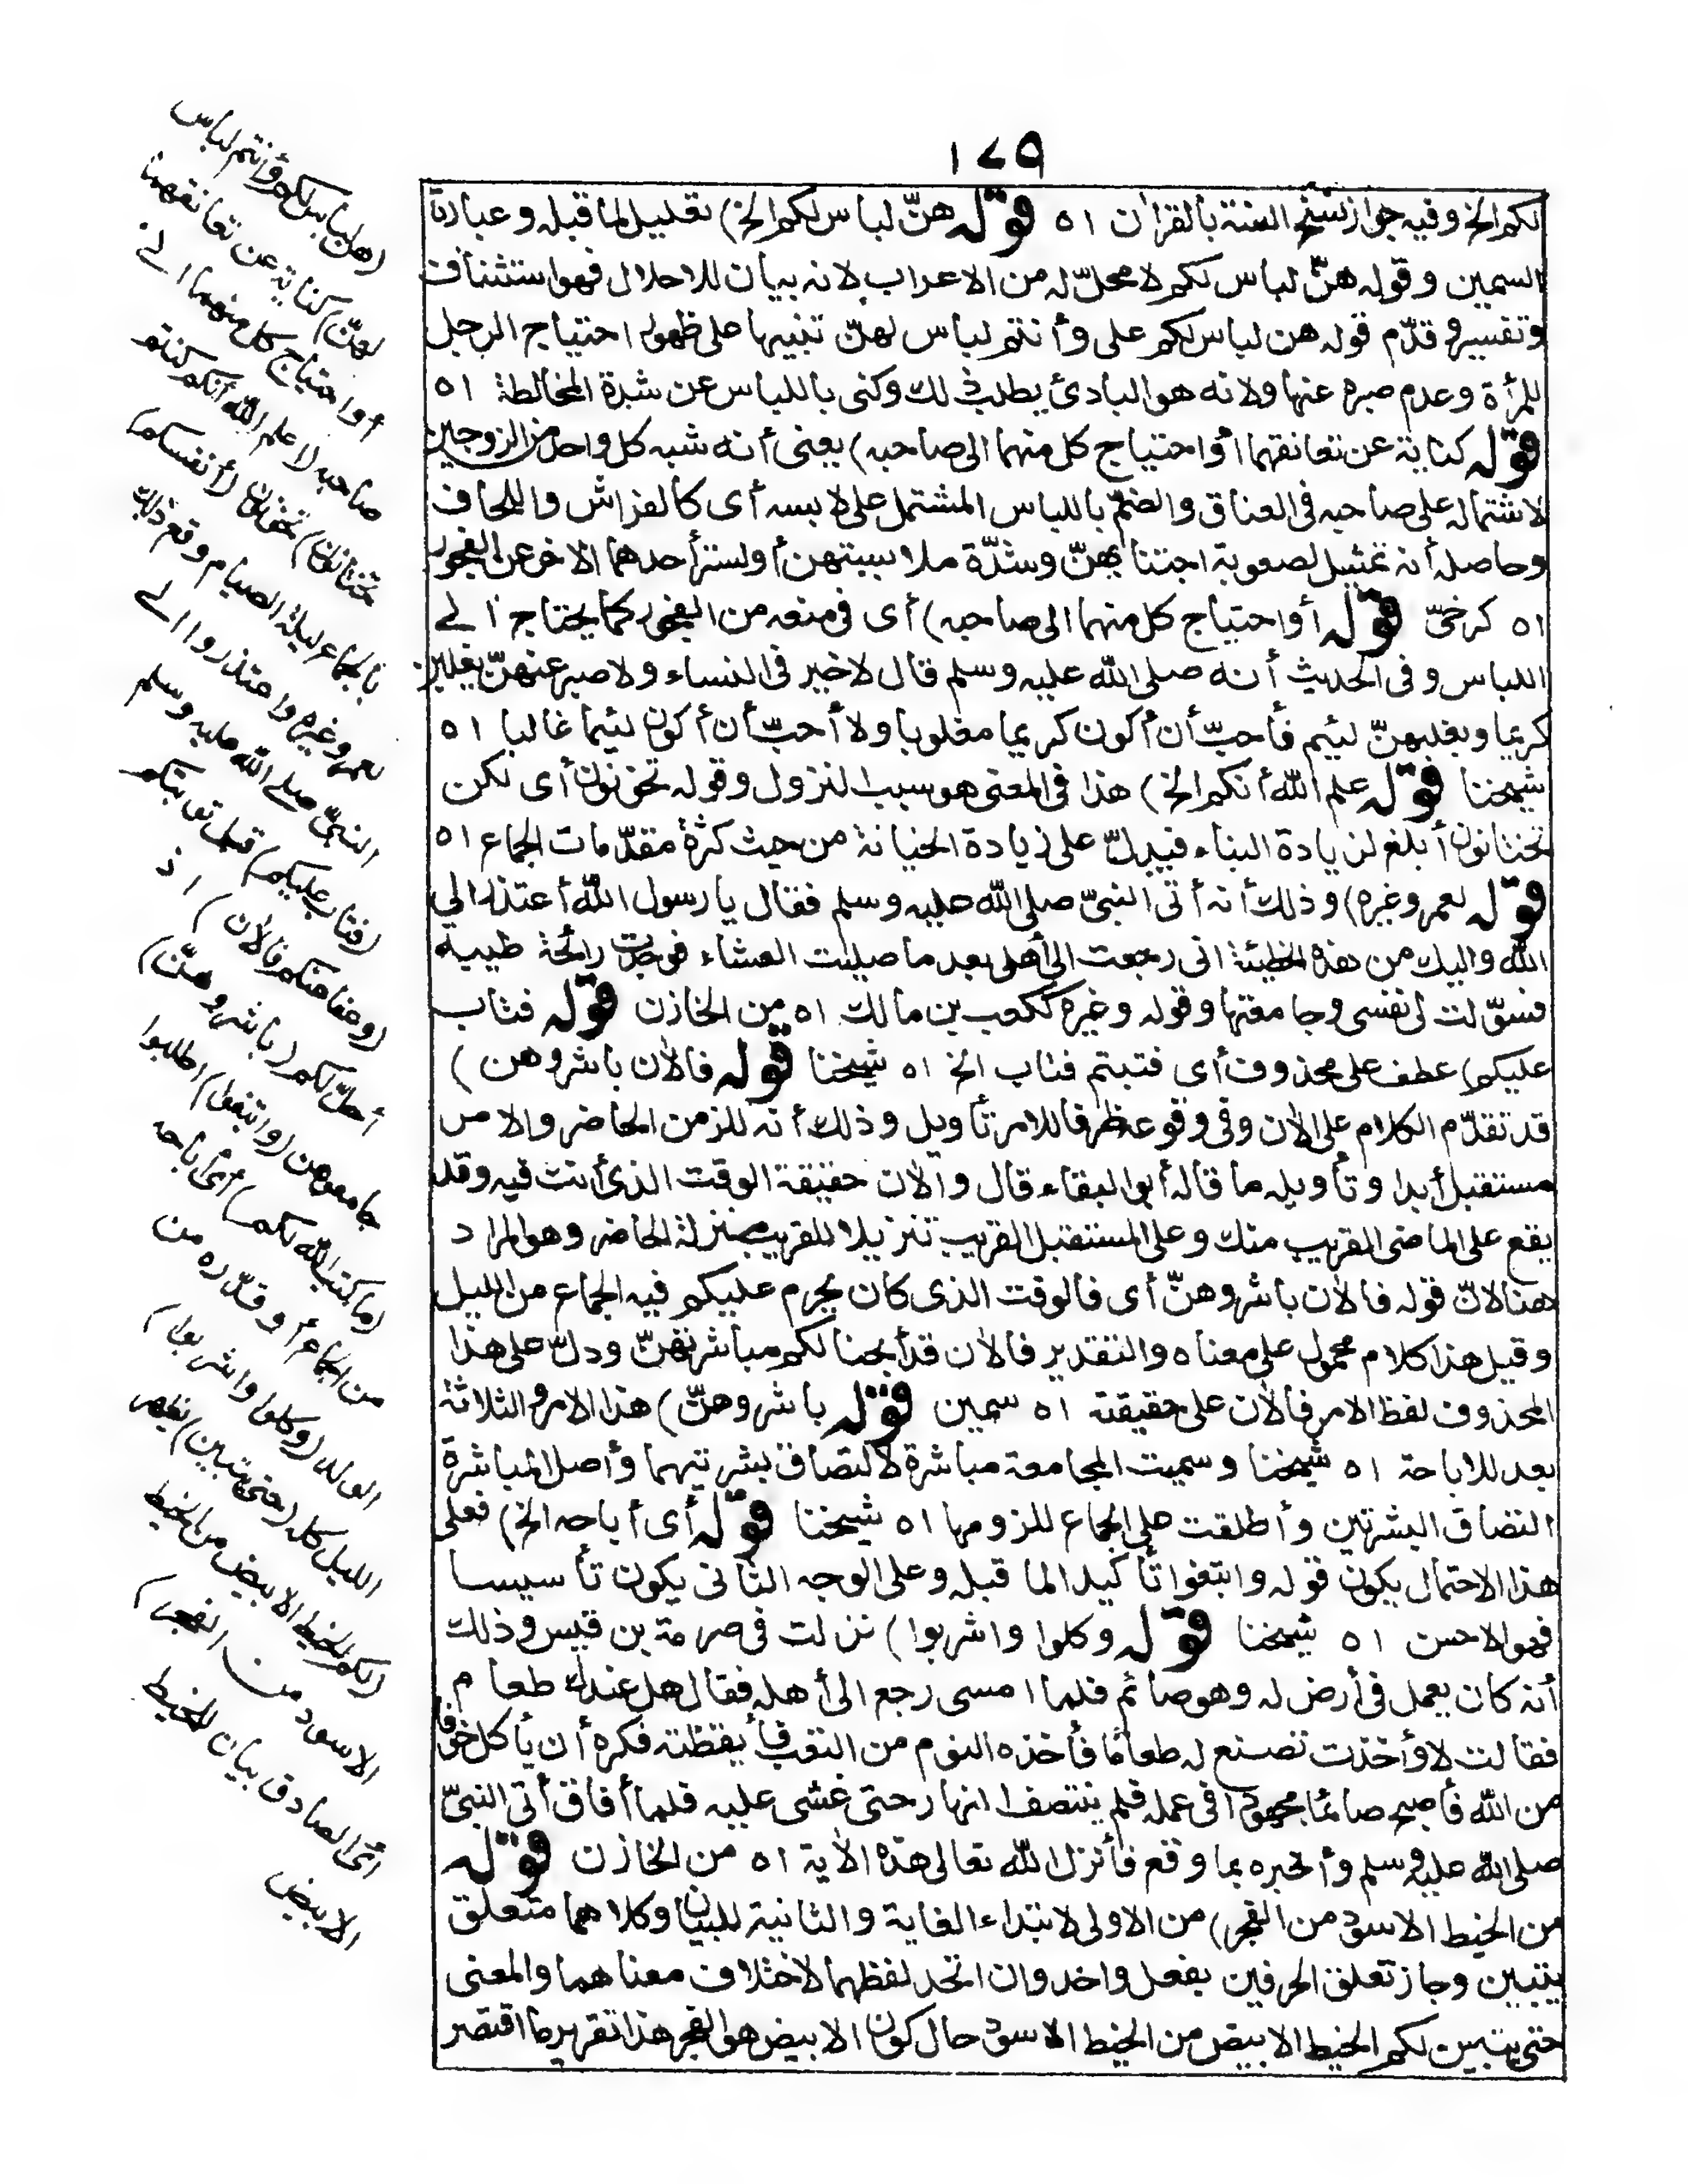 ١٧٩
لكم الخ وفيه جواز نسخ السنة بالقرآن اه قوله هنّ لباس لكم الخ) تعليل لما قبله وعبارة
السمين وقوله هنّ لباس لكم لا محلّ له من الاعراب لانه بيان للاحلال فهو استئناف
وتفسير وقدّم قوله هن لباس لكم على وأنتم لباس لهنّ تنبيها على ظهور احتياج الرجل
للمرأة وعدم صبره عنها ولانه هو البادئ يطلب ذلك وكنى باللباس عن شدة المخالطة اه
قوله كناية عن تعانقهما أو احتياج كل منهما الى صاحبه) يعنى أنه شبه كل واحد من الزوجين
لاشتماله على صاحبه فى العناق والضمّ باللباس المشتمل على لابسه أى كالفراش واللحاف
وحاصله أنه تمثيل لصعوبة اجتنابهنّ وشدّة ملابستهن أو لستر أحدهما الآخر عن الفجور
اه كرخىّ قوله أو احتياج كل منهما الى صاحبه) أى فى منعه من الفجور كما يحتاج الى
اللباس وفى الحديث أنه صلى الله عليه وسلم قال لا خير فى النساء ولا صبر عنهنّ يغلبن
كريما ويغلبهنّ لئيم فأحبّ أن أكون كريما مغلوبا ولا أحبّ أن أكون لئيما غالبا اه
شيخنا قوله علم الله أنكم الخ) هذا فى المعنى هو سبب النزول وقوله تخونون أى لكن
تختانون أبلغ لزيادة البناء فيدلّ على زيادة الخيانة من حيث كثرة مقدّمات الجماع اه
قوله لعمر وغيره) وذلك أنه أتى النبىّ صلى الله عليه وسلم فقال يا رسول الله أعتذر الى
الله واليك من هذه الخطيئة انى رجعت الى أهلى بعد ما صليت العشاء فوجدت رائحة طيبة
فسوّلت لى نفسى وجامعتها وقوله وغيره ككعب بن مالك اه من الخازن قوله فتاب
عليكم) عطف على محذوف أى فتبتم فتاب الخ اه شيخنا قوله فالآن باشروهن)
قد تقدّم الكلام على الآن وفى وقوعه ظرفا للامر تأويل وذلك أنه للزمن الحاضر والامر
مستقبل أبدا وتأويله ما قاله أبو البقاء قال والآن حقيقة الوقت الذى أنت فيه وقد
يقع على الماضى القريب منك وعلى المستقبل القريب تنزيلا للقريب منزلة الحاضر وهو المراد
هنا لانّ قوله فالآن باشروهنّ أى فالوقت الذى كان يحرم عليكم فيه الجماع من الليل
وقيل هذا كلام محمول على معناه والتقدير فالآن قد أبحنا لكم مباشرتهنّ ودلّ على هذا
المحذوف لفظ الامر فالآن على حقيقته اه سمين قوله باشروهنّ) هذا الامر والثلاثة
بعد للاباحة اه شيخنا وسميت المجامعة مباشرة لالتصاق بشرتيهما وأصل المباشرة
التصاق البشرتين وأطلقت على الجماع للزومها اه شيخنا قوله أى أباحه الخ) فعلى
هذا الاحتمال يكون قوله وابتغوا تأكيدا لما قبله وعلى الوجه الثانى يكون تأسيسا
فهو الاحسن اه شيخنا قوله وكلوا واشربوا) نزلت فى صرمة بن قيس وذلك
أنه كان يعمل فى أرض له وهو صائم فلما امسى رجع الى أهله فقال هل عندك طعام
فقالت لا وأخذت تصنع له طعاما فأخذه النوم من التعب فأيقظته فكره أن يأكل خوفا
من الله فأصبح صائما مجهودا فى عمله فلم ينتصف النهار حتى غشى عليه فلما أفاق أتى النبىّ
صلى الله عليه وسلم وأخبره بما وقع فأنزل الله تعالى هذه الآية اه من الخازن قوله
من الخيط الاسود من الفجر) من الاولى لابتداء الغاية والثانية للبيان وكلاهما متعلق
بيتبين وجاز تعلق الحرفين بفعل واحد وان اتحد لفظهما لاختلاف معناهما والمعنى
حتى يتبين لكم الخيط الابيض من الخيط الاسود حال كون الابيض هو الفجر هذا تقرير ما اقتصر
(هنّ لباس لكم وأنتم لباس
لهنّ) كناية عن تعانقهما
أو احتياج كل منهما الى
صاحبه (علم الله أنكم كنتم
تختانون) تخونون (أنفسكم)
بالجماع ليلة الصيام وقع ذلك
لعمر وغيره واعتذروا الى
النبىّ صلى الله عليه وسلم
(فتاب عليكم) قبل توبتكم
(وعفا عنكم فالآن) اذ
أحلّ لكم (باشروهنّ)
جامعوهن (وابتغوا) اطلبوا
(ما كتب الله لكم) أى أباحه
من الجماع أو قدّره من
الولد (وكلوا واشربوا)
الليل كله (حتى يتبين) يظهر
(لكم الخيط الابيض من الخيط
الاسود من الفجر)
أى الصادق بيان للخيط
الابيض